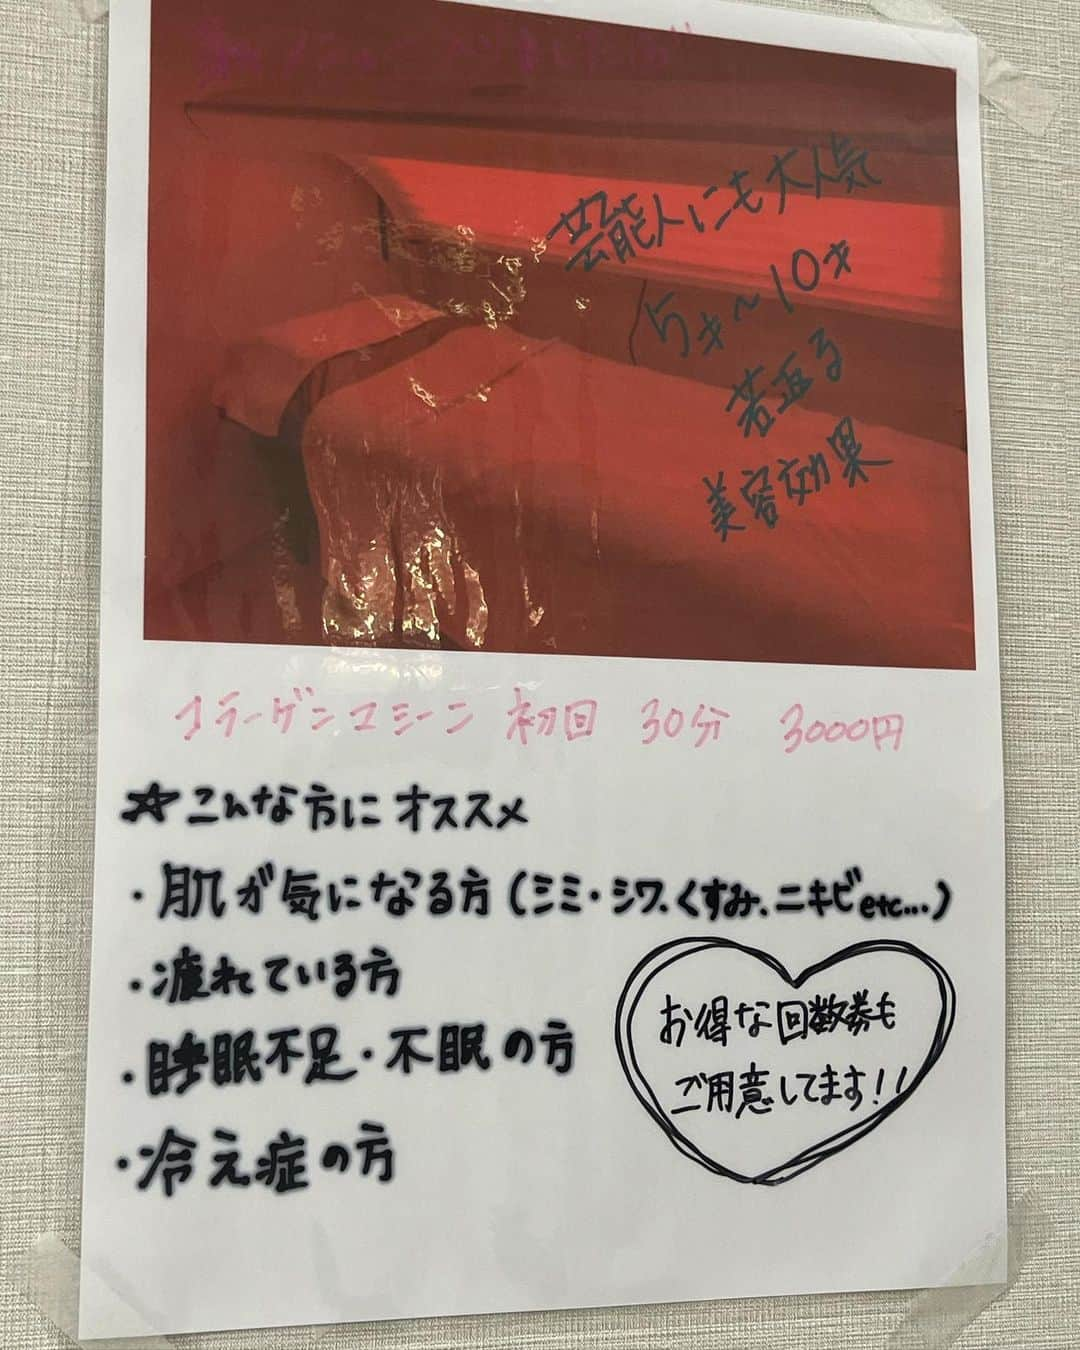 芸能人にも大人気
5才~10才
若返る
美容効果
コラーゲンマシーン 初回 30分 3000円
☆こんな方にオススメ
・肌が気になる方(シミ・シワ、くすみ、ニキビetc...)
・疲れている方
・睡眠不足・不眠の方
・冷え症の方
お得な回数券も
ご用意してます!!